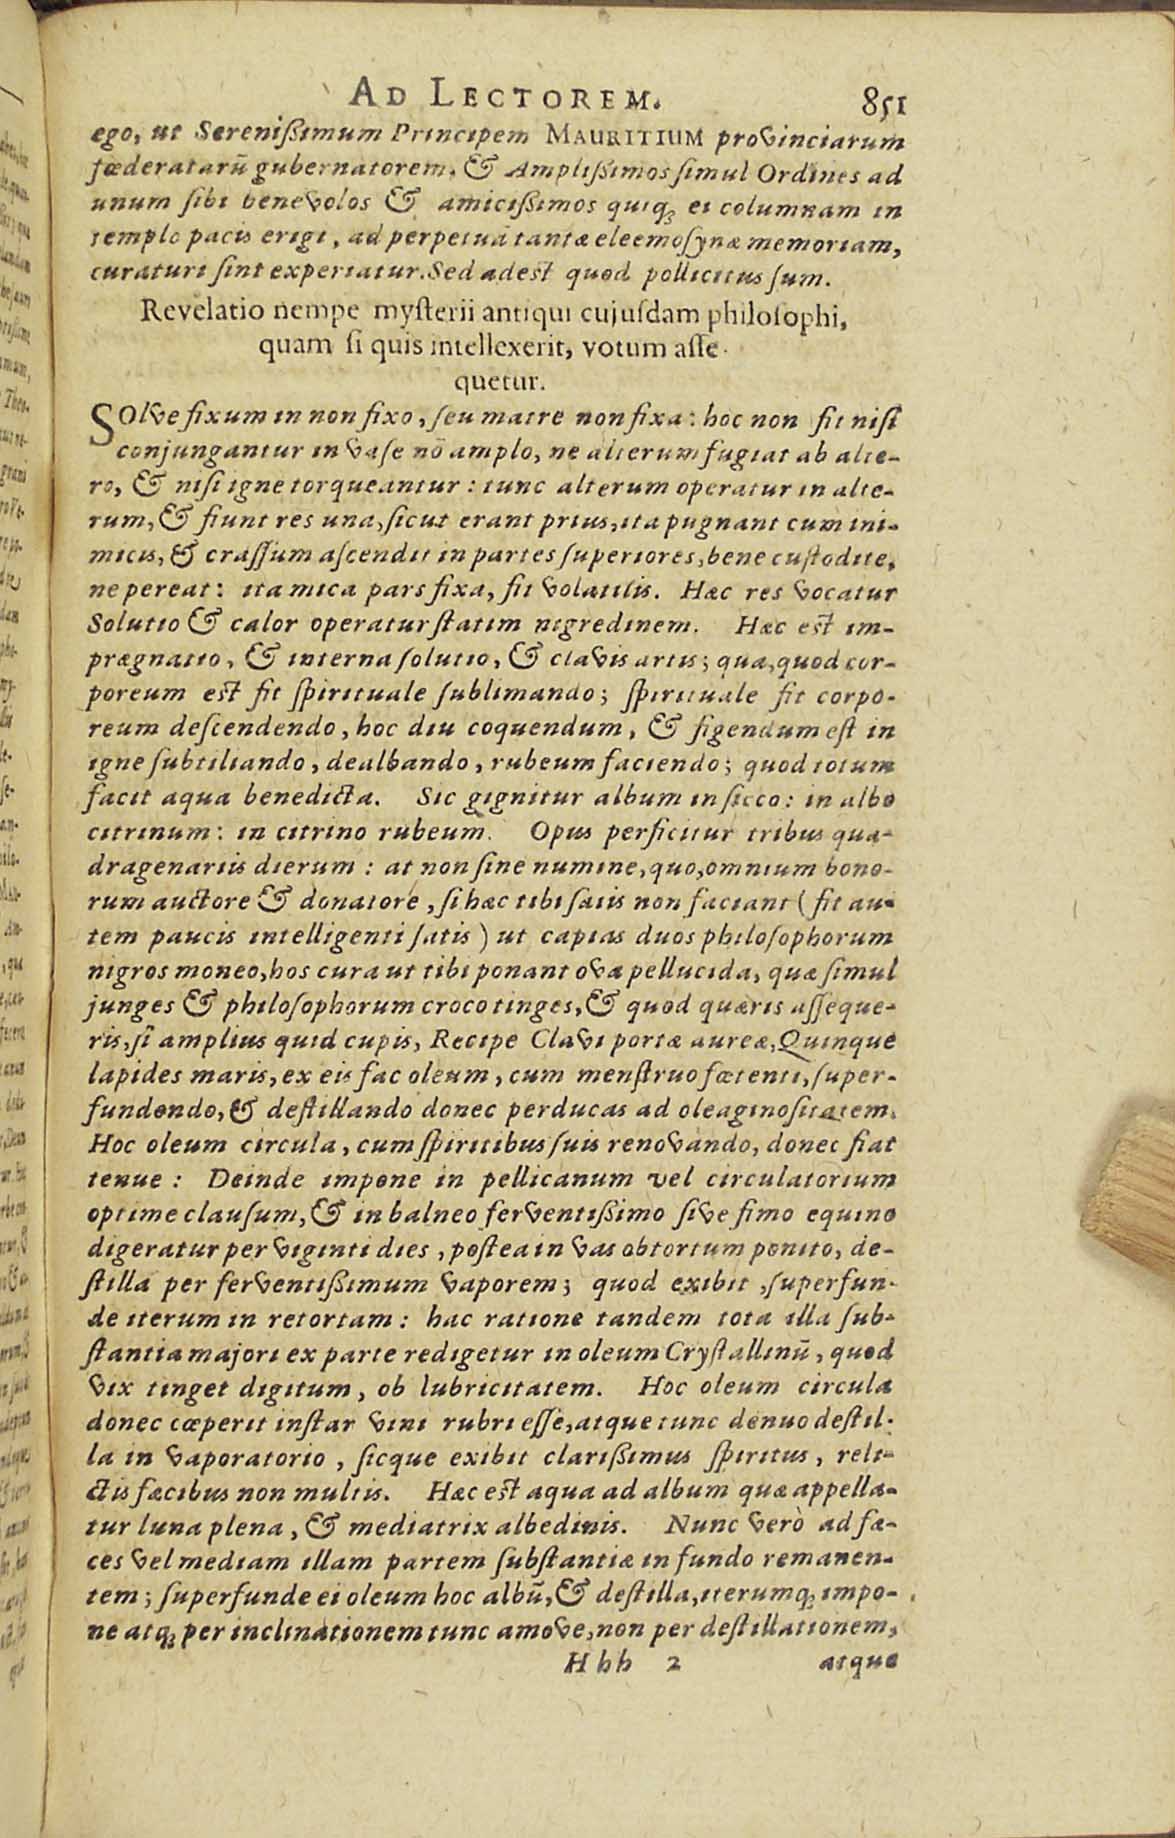 AD LECTOREM. 851
ego, ut Sereniſſimum Principem MAURITIUM provinciarum
fœderatarū gubernatorem, & Ampliſſimos ſimul Ordines ad
unum ſibi benevolos & amiciſſimos quiq; ei columnam in
templo pacis erigi, ad perpetuā tantæ eleemoſynæ memoriam,
curaturi ſint experiatur. Sed adest quod pollicitus ſum.
Revelatio nempe myſterii antiqui cujuſdam philoſophi,
quam ſi quis intellexerit, votum aſſe-
quetur.
SOlve fixum in non fixo, ſeu matre non fixa: hoc non fit niſi
conjungantur in vaſe nō amplo, ne alterum fugiat ab alte-
ro, & niſi igne torqueantur: tunc alterum operatur in alte-
rum, & fiunt res una, ſicut erant prius, ita pugnant cum ini-
micis, & craſſum aſcendit in partes ſuperiores, bene cuſtodite,
ne pereat: ita mica pars fixa, fit volatilis. Hæc res vocatur
Solutio & calor operatur ſtatim nigredinem. Hæc est im-
prægnatio, & interna ſolutio, & clavis artis; qua, quod cor-
poreum est fit ſpirituale ſublimando; ſpirituale fit corpo-
reum deſcendendo, hoc diu coquendum, & figendum eſt in
igne ſubtiliando, dealbando, rubeum faciendo; quod totum
facit aqua benedicta. Sic gignitur album in ſicco: in albo
citrinum: in citrino rubeum. Opus perficitur tribus qua-
dragenariis dierum: at non ſine numine, quo, omnium bono-
rum auctore & donatore, ſi hæc tibi ſatis non faciant (fit au-
tem paucis intelligenti ſatis) ut capias duos philoſophorum
nigros moneo, hos cura ut tibi ponant ova pellucida, quæ ſimul
junges & philoſophorum croco tinges, & quod quæris aſſeque-
ris, ſi amplius quid cupis, Recipe Clavi portæ aureæ, Quinque
lapides maris, ex eis fac oleum, cum menſtruo fœtenti, ſuper-
fundendo, & deſtillando donec perducas ad oleaginoſitatem.
Hoc oleum circula, cum ſpiritibus ſuis renovando, donec fiat
tenue: Deinde impone in pellicanum vel circulatorium
optime clauſum, & in balneo ferventiſſimo ſive fimo equino
digeratur per viginti dies, poſtea in vas obtortum ponito, de-
ſtilla per ferventiſſimum vaporem; quod exibit, ſuperfun-
de iterum in retortam: hac ratione tandem tota illa ſub-
ſtantia majori ex parte redigetur in oleum Cryſtallinū, quod
vix tinget digitum, ob lubricitatem. Hoc oleum circula
donec cœperit inſtar vini rubri eſſe, atque tunc denuo deſtil-
la in vaporatorio, ſicque exibit clariſſimus ſpiritus, reli-
ctis fæcibus non multis. Hæc est aqua ad album quæ appella-
tur luna plena, & mediatrix albedinis. Nunc verò ad fæ-
ces vel mediam illam partem ſubſtantiæ in fundo remanen-
tem; ſuperfunde ei oleum hoc albū, & deſtilla, iterumq; impo-
ne atq; per inclinationem tunc amove, non per deſtillationem,
Hhh 2 atque